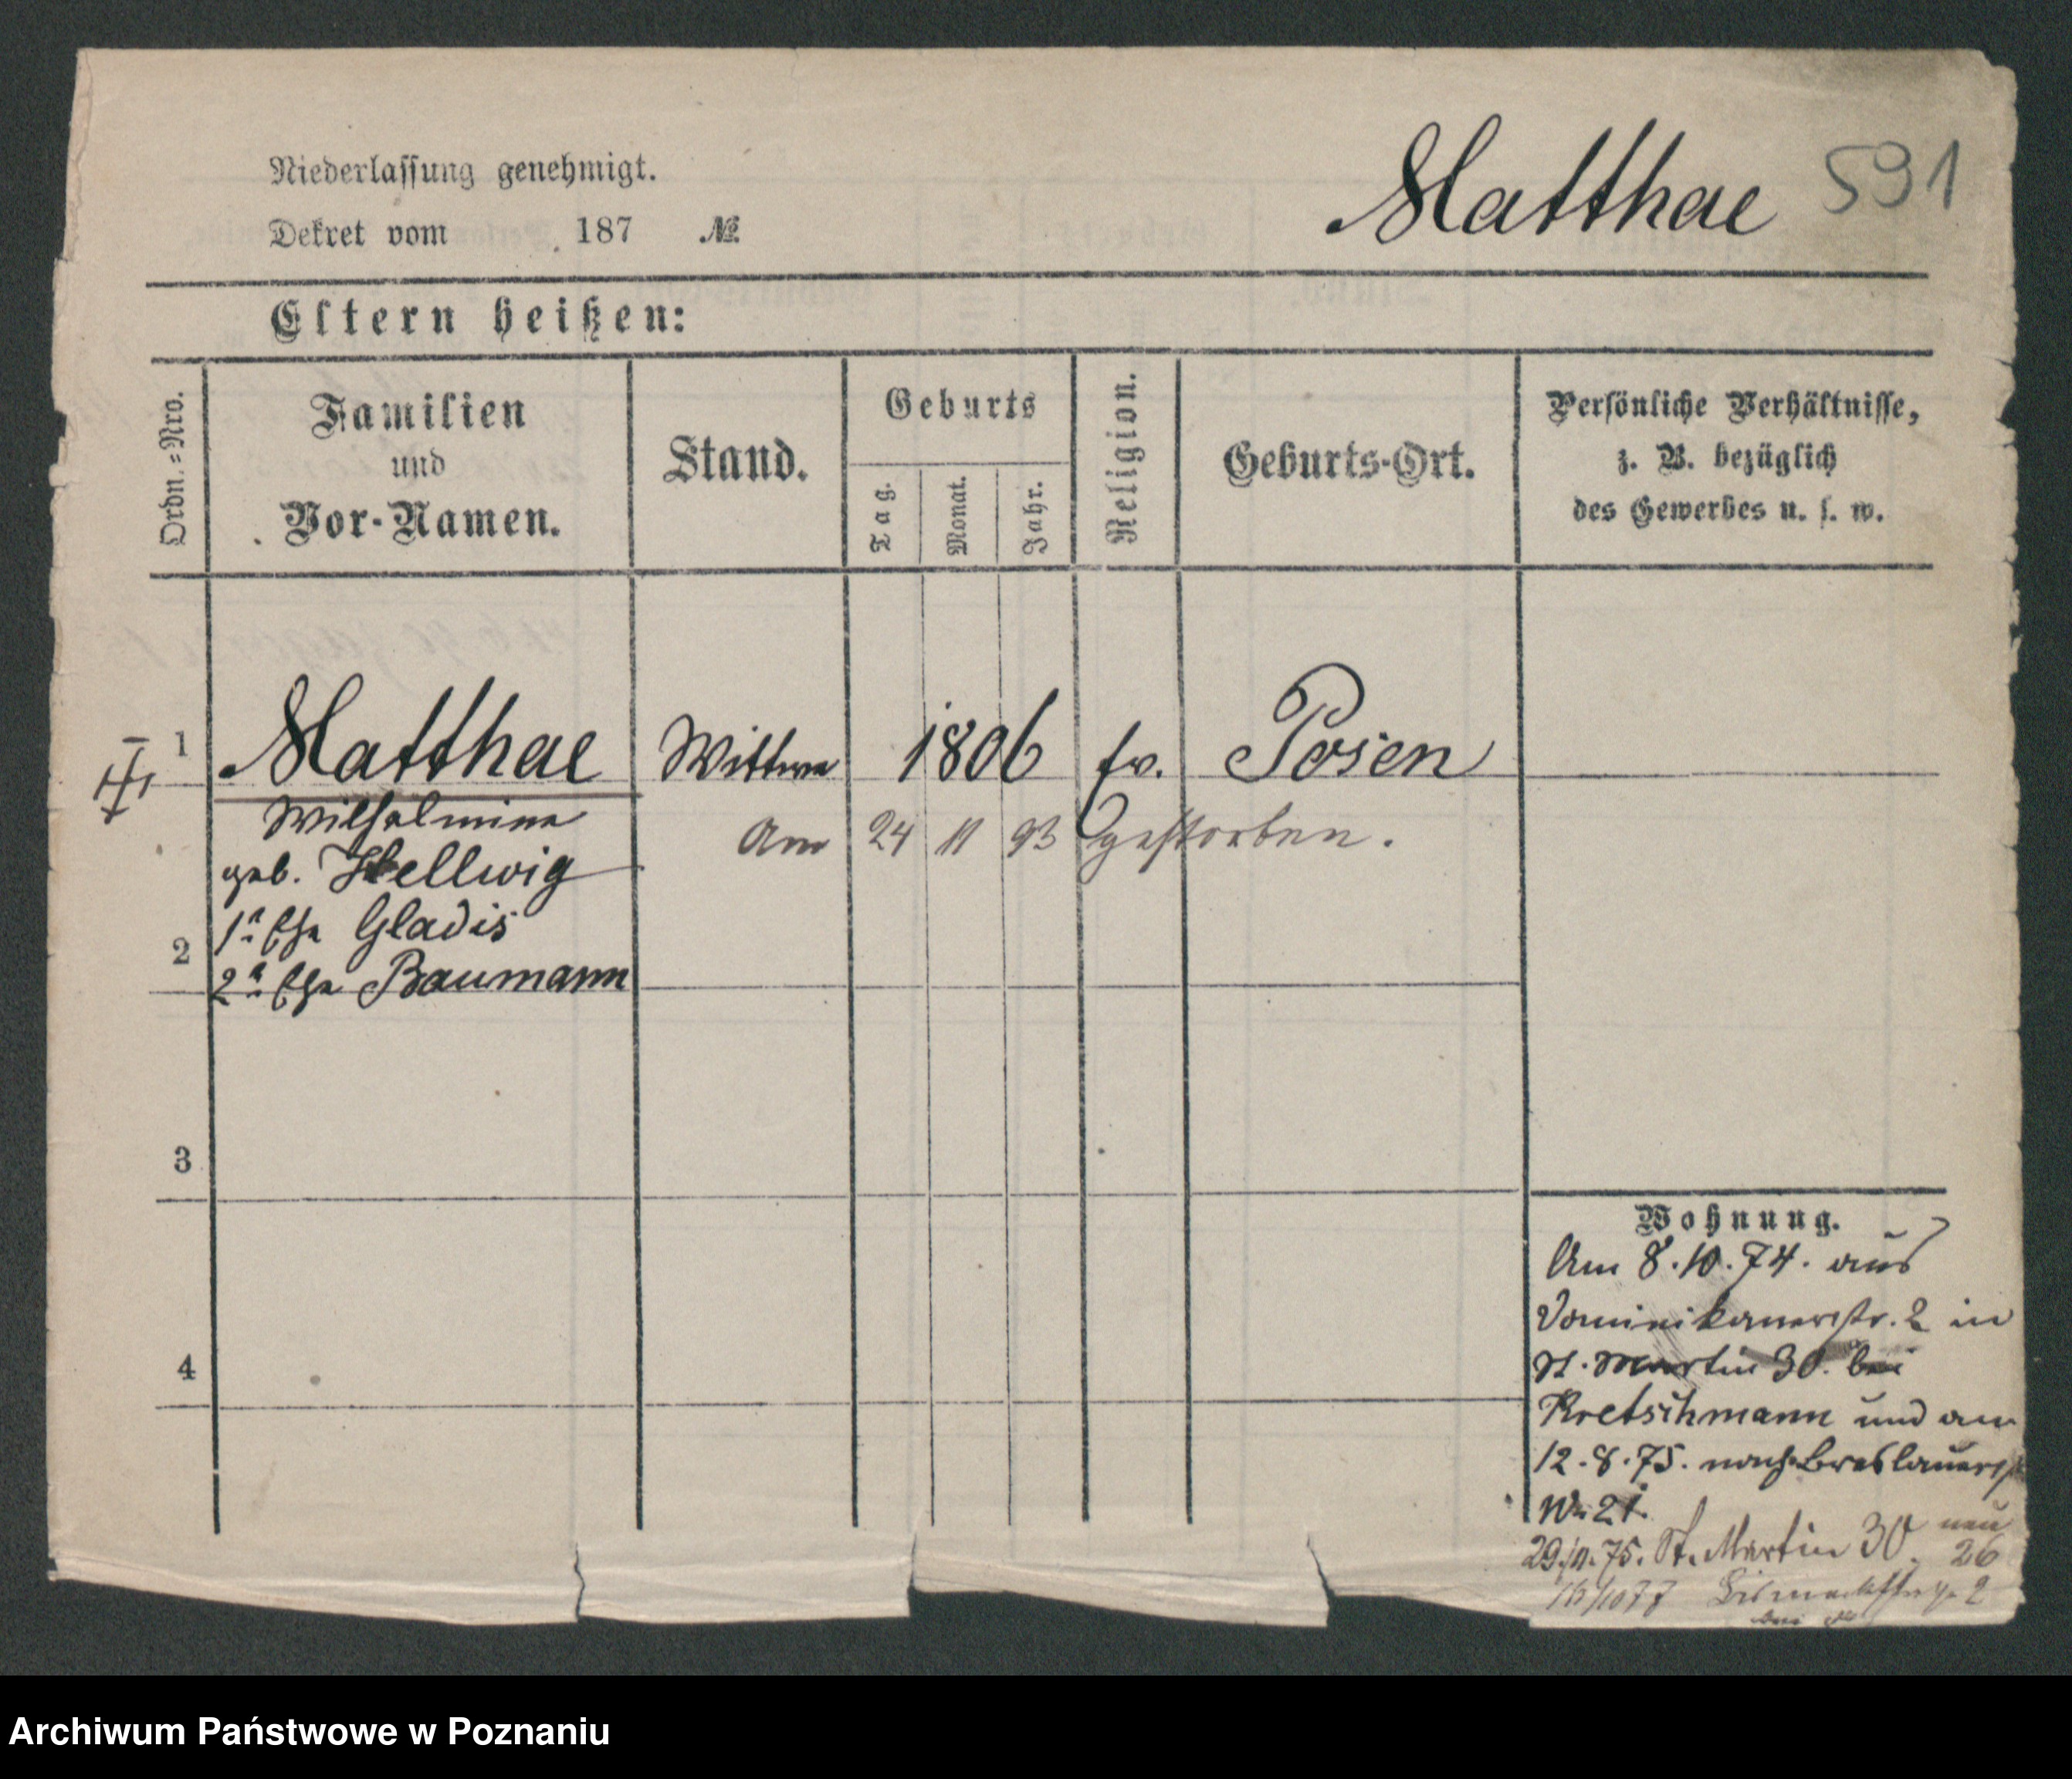 Matthae 591
Niederlassung genehmigt.
Dekret vom 187 №
Eltern heißen:
Ordn.=Nro.
Familien
und
Vor-Namen.
Stand.
Geburts
Tag.
Monat.
Jahr.
Religion.
Geburts-Ort.
Persönliche Verhältnisse,
z. B. bezüglich
des Gewerbes u. s. w.
1 Matthae Wittwe 1806 ev. Posen
Wilhelmine
Am 24 11 93 gestorben.
geb. Hellwig
1te Ehe Gladis
2
2te Ehe Baumann
3
4
Wohnung.
Am 8.10.74. aus
Dominikanerstr. 2 in
St. Martin 30. bei
Kretschmann und am
12.8.75. nach Breslauerst
No 21.
29./11.75. St. Martin 30. neu
26
/10 77 Bismarckstraße 2
bei
Archiwum Państwowe w Poznaniu